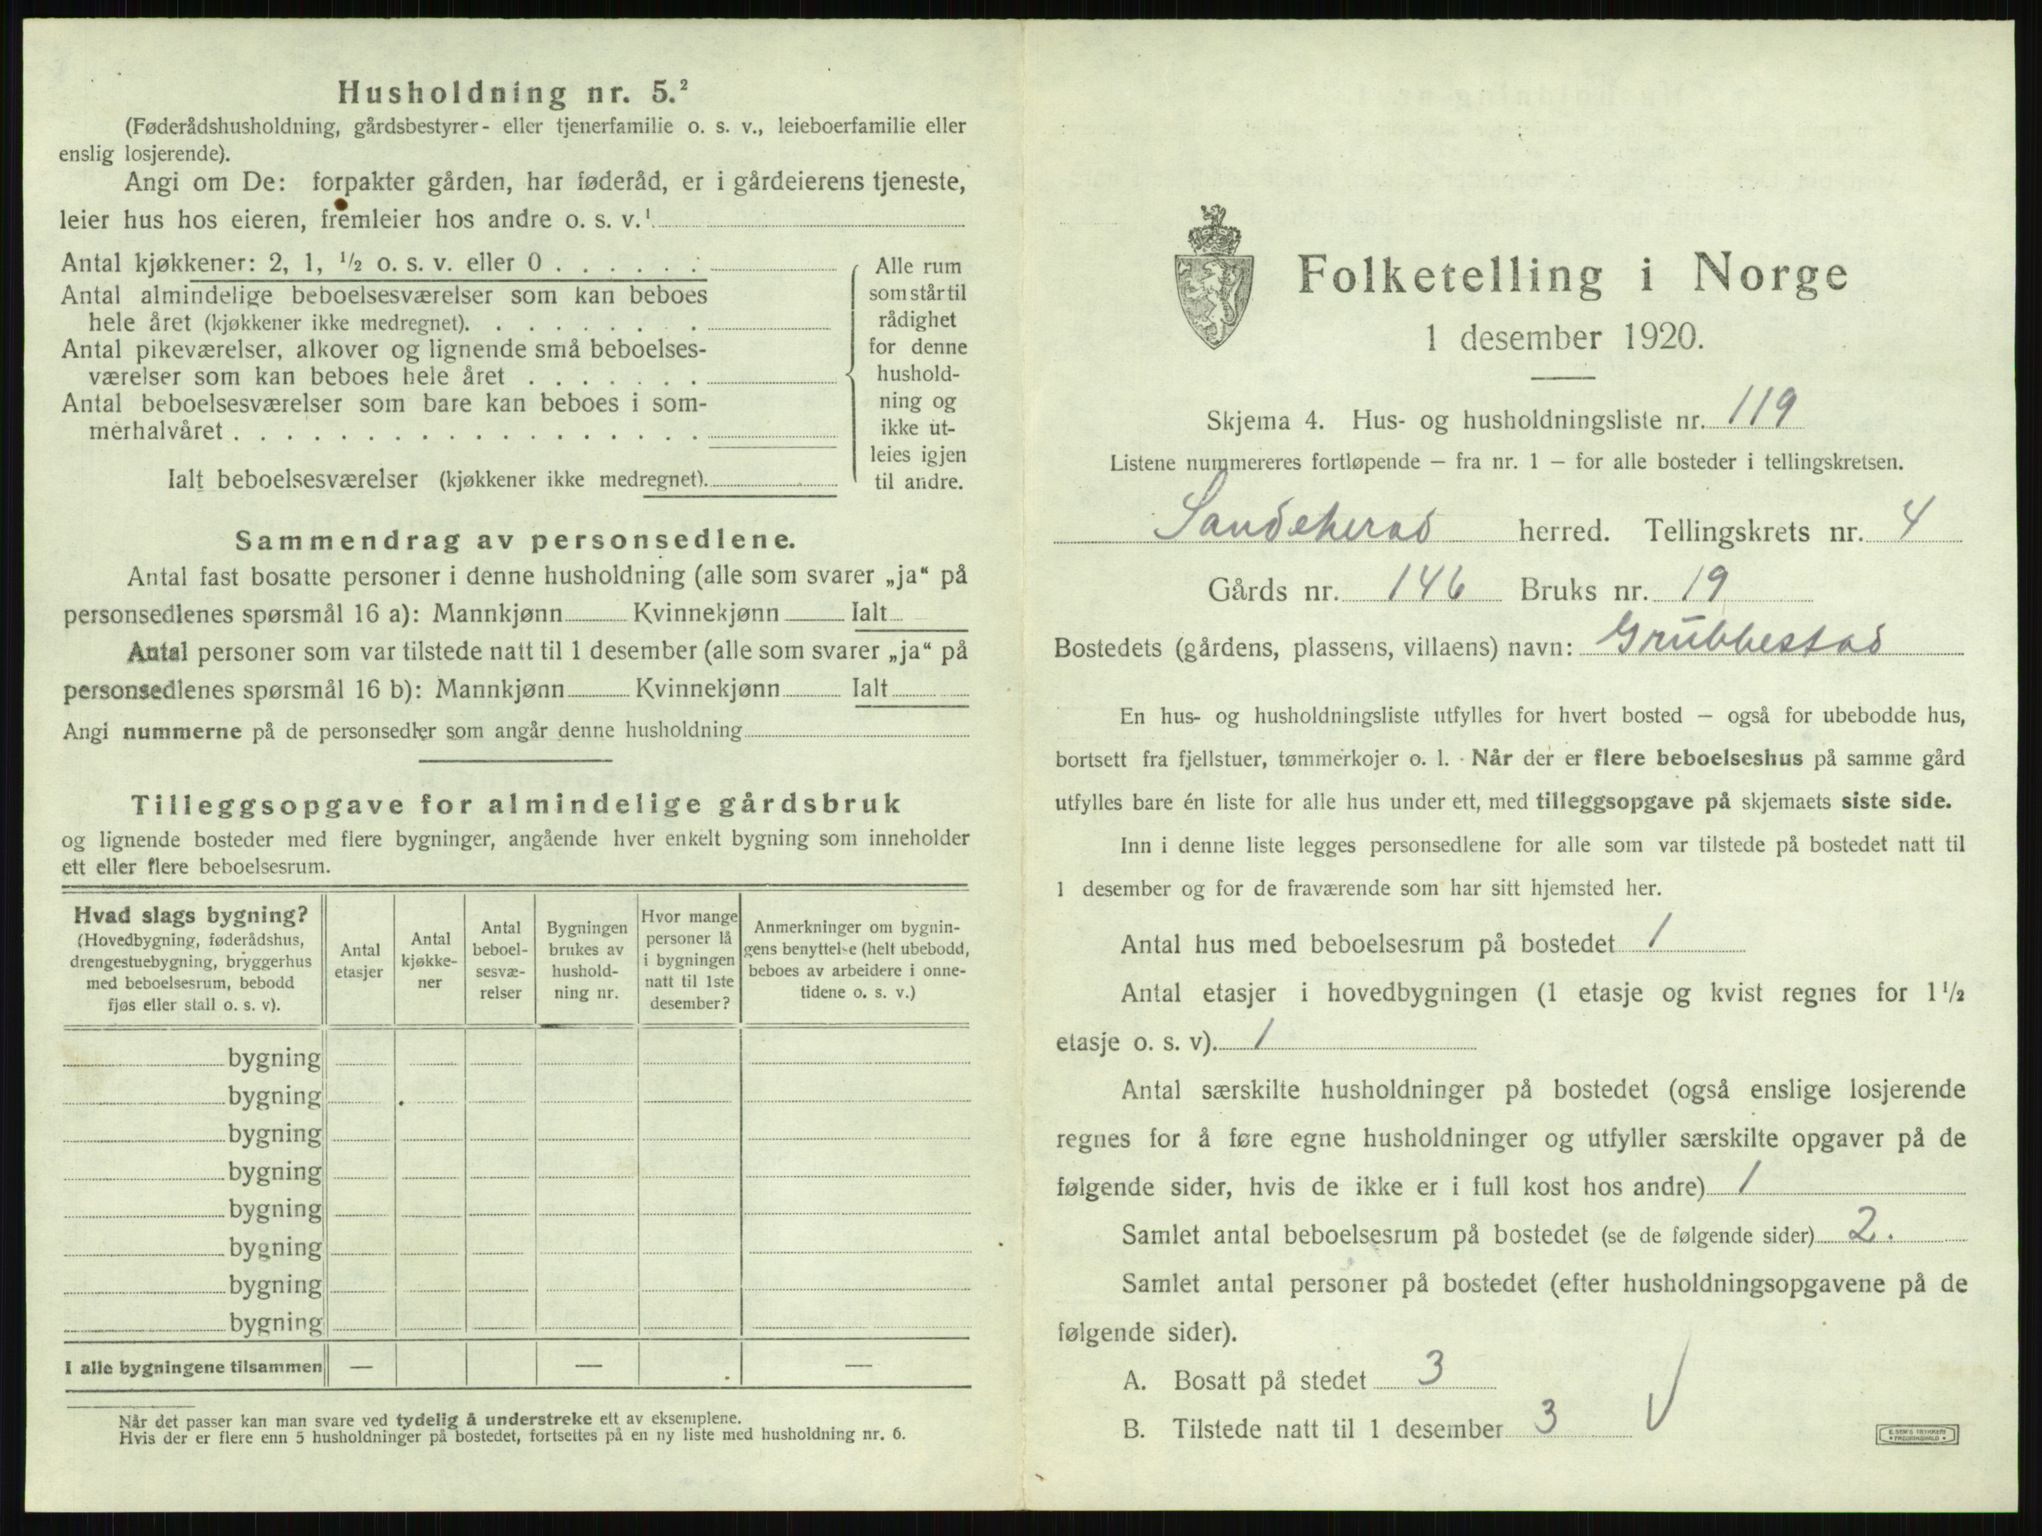 Husholdning nr. 5.²
(Føderådshusholdning, gårdsbestyrer- eller tjenerfamilie o. s. v., leieboerfamilie eller
enslig losjerende).
Angi om De: forpakter gården, har føderåd, er i gårdeierens tjeneste,
leier hus hos eieren, fremleier hos andre o. s. v.¹
Antal kjøkkener: 2, 1, ½ o. s. v. eller 0 . . . . . .
Antal almindelige beboelsesværelser som kan beboes
hele året (kjøkkener ikke medregnet). . . . . . . . .
Antal pikeværelser, alkover og lignende små beboelses-
værelser som kan beboes hele året . . . . . . .
Antal beboelsesværelser som bare kan beboes i som-
merhalvåret . . . . . . . . . . . . . . . . . .
Ialt beboelsesværelser (kjøkkener ikke medregnet).
Alle rum
som står til
rådighet
for denne
hushold-
ning og
ikke ut-
leies igjen
til andre.
Sammendrag av personsedlene.
Antal fast bosatte personer i denne husholdning (alle som svarer „ja“ på
personsedlenes spørsmål 16 a): Mannkjønn Kvinnekjønn Ialt
Antal personer som var tilstede natt til 1 desember (alle som svarer „ja“ på
personsedlenes spørsmål 16 b): Mannkjønn Kvinnekjønn Ialt
Angi nummerne på de personsedler som angår denne husholdning
Tilleggsopgave for almindelige gårdsbruk
og lignende bosteder med flere bygninger, angående hver enkelt bygning som inneholder
ett eller flere beboelsesrum.
Hvad slags bygning?
(Hovedbygning, føderådshus,
drengestuebygning, bryggerhus
med beboelsesrum, bebodd
fjøs eller stall o. s. v).
Antal
etasjer
Antal
kjøkke-
ner
Antal
beboel-
sesvæ-
relser
Bygningen
brukes av
hushold-
ning nr.
Hvor mange
personer lå
i bygningen
natt til 1ste
desember?
Anmerkninger om bygnin-
gens benyttelse (helt ubebodd,
beboes av arbeidere i onne-
tidene o. s. v.)
bygning
bygning
bygning
bygning
bygning
bygning
bygning
bygning
I alle bygningene tilsammen — — —
Når det passer kan man svare ved tydelig å understreke ett av eksemplene.
Hvis der er flere enn 5 husholdninger på bostedet, fortsettes på en ny liste med husholdning nr. 6.
Folketelling i Norge
1 desember 1920.
Skjema 4. Hus- og husholdningsliste nr. 119
Listene nummereres fortløpende — fra nr. 1 — for alle bosteder i tellingskretsen.
Sandeherad herred. Tellingskrets nr. 4
Gårds nr. 146 Bruks nr. 19
Bostedets (gårdens, plassens, villaens) navn: Grubbestad
En hus- og husholdningsliste utfylles for hvert bosted — også for ubebodde hus,
bortsett fra fjellstuer, tømmerkojer o. l. Når der er flere beboelseshus på samme gård
utfylles bare én liste for alle hus under ett, med tilleggsopgave på skjemaets siste side.
Inn i denne liste legges personsedlene for alle som var tilstede på bostedet natt til
1 desember og for de fraværende som har sitt hjemsted her.
Antal hus med beboelsesrum på bostedet 1
Antal etasjer i hovedbygningen (1 etasje og kvist regnes for 1½
etasje o. s. v). 1
Antal særskilte husholdninger på bostedet (også enslige losjerende
regnes for å føre egne husholdninger og utfyller særskilte opgaver på de
følgende sider, hvis de ikke er i full kost hos andre) 1
Samlet antal beboelsesrum på bostedet (se de følgende sider) 2.
Samlet antal personer på bostedet (efter husholdningsopgavene på de
følgende sider).
A. Bosatt på stedet 3
B. Tilstede natt til 1 desember 3
E. SEM'S TRYKKERI
FREDRIKSHALD